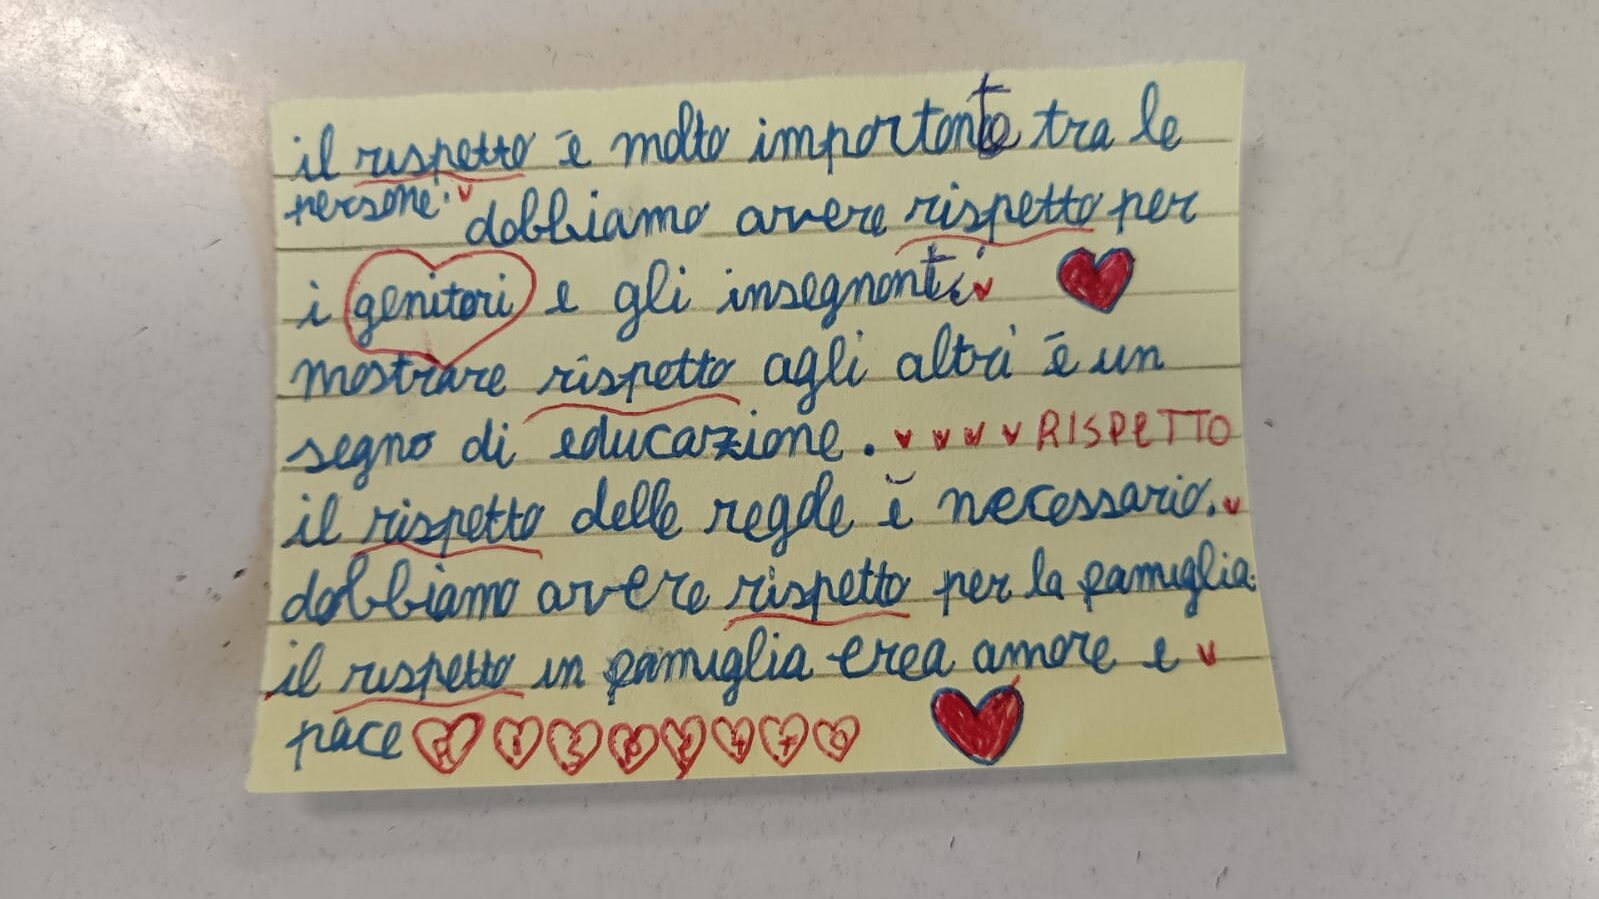 il rispetto è molto importante tra le
persone. dobbiamo avere rispetto per
i genitori e gli insegnanti
mostrare rispetto agli altri è un
segno di educazione. RISPETTO
il rispetto delle regole è necessario.
dobbiamo avere rispetto per la famiglia.
il rispetto in famiglia crea amore e
pace RISPETTO